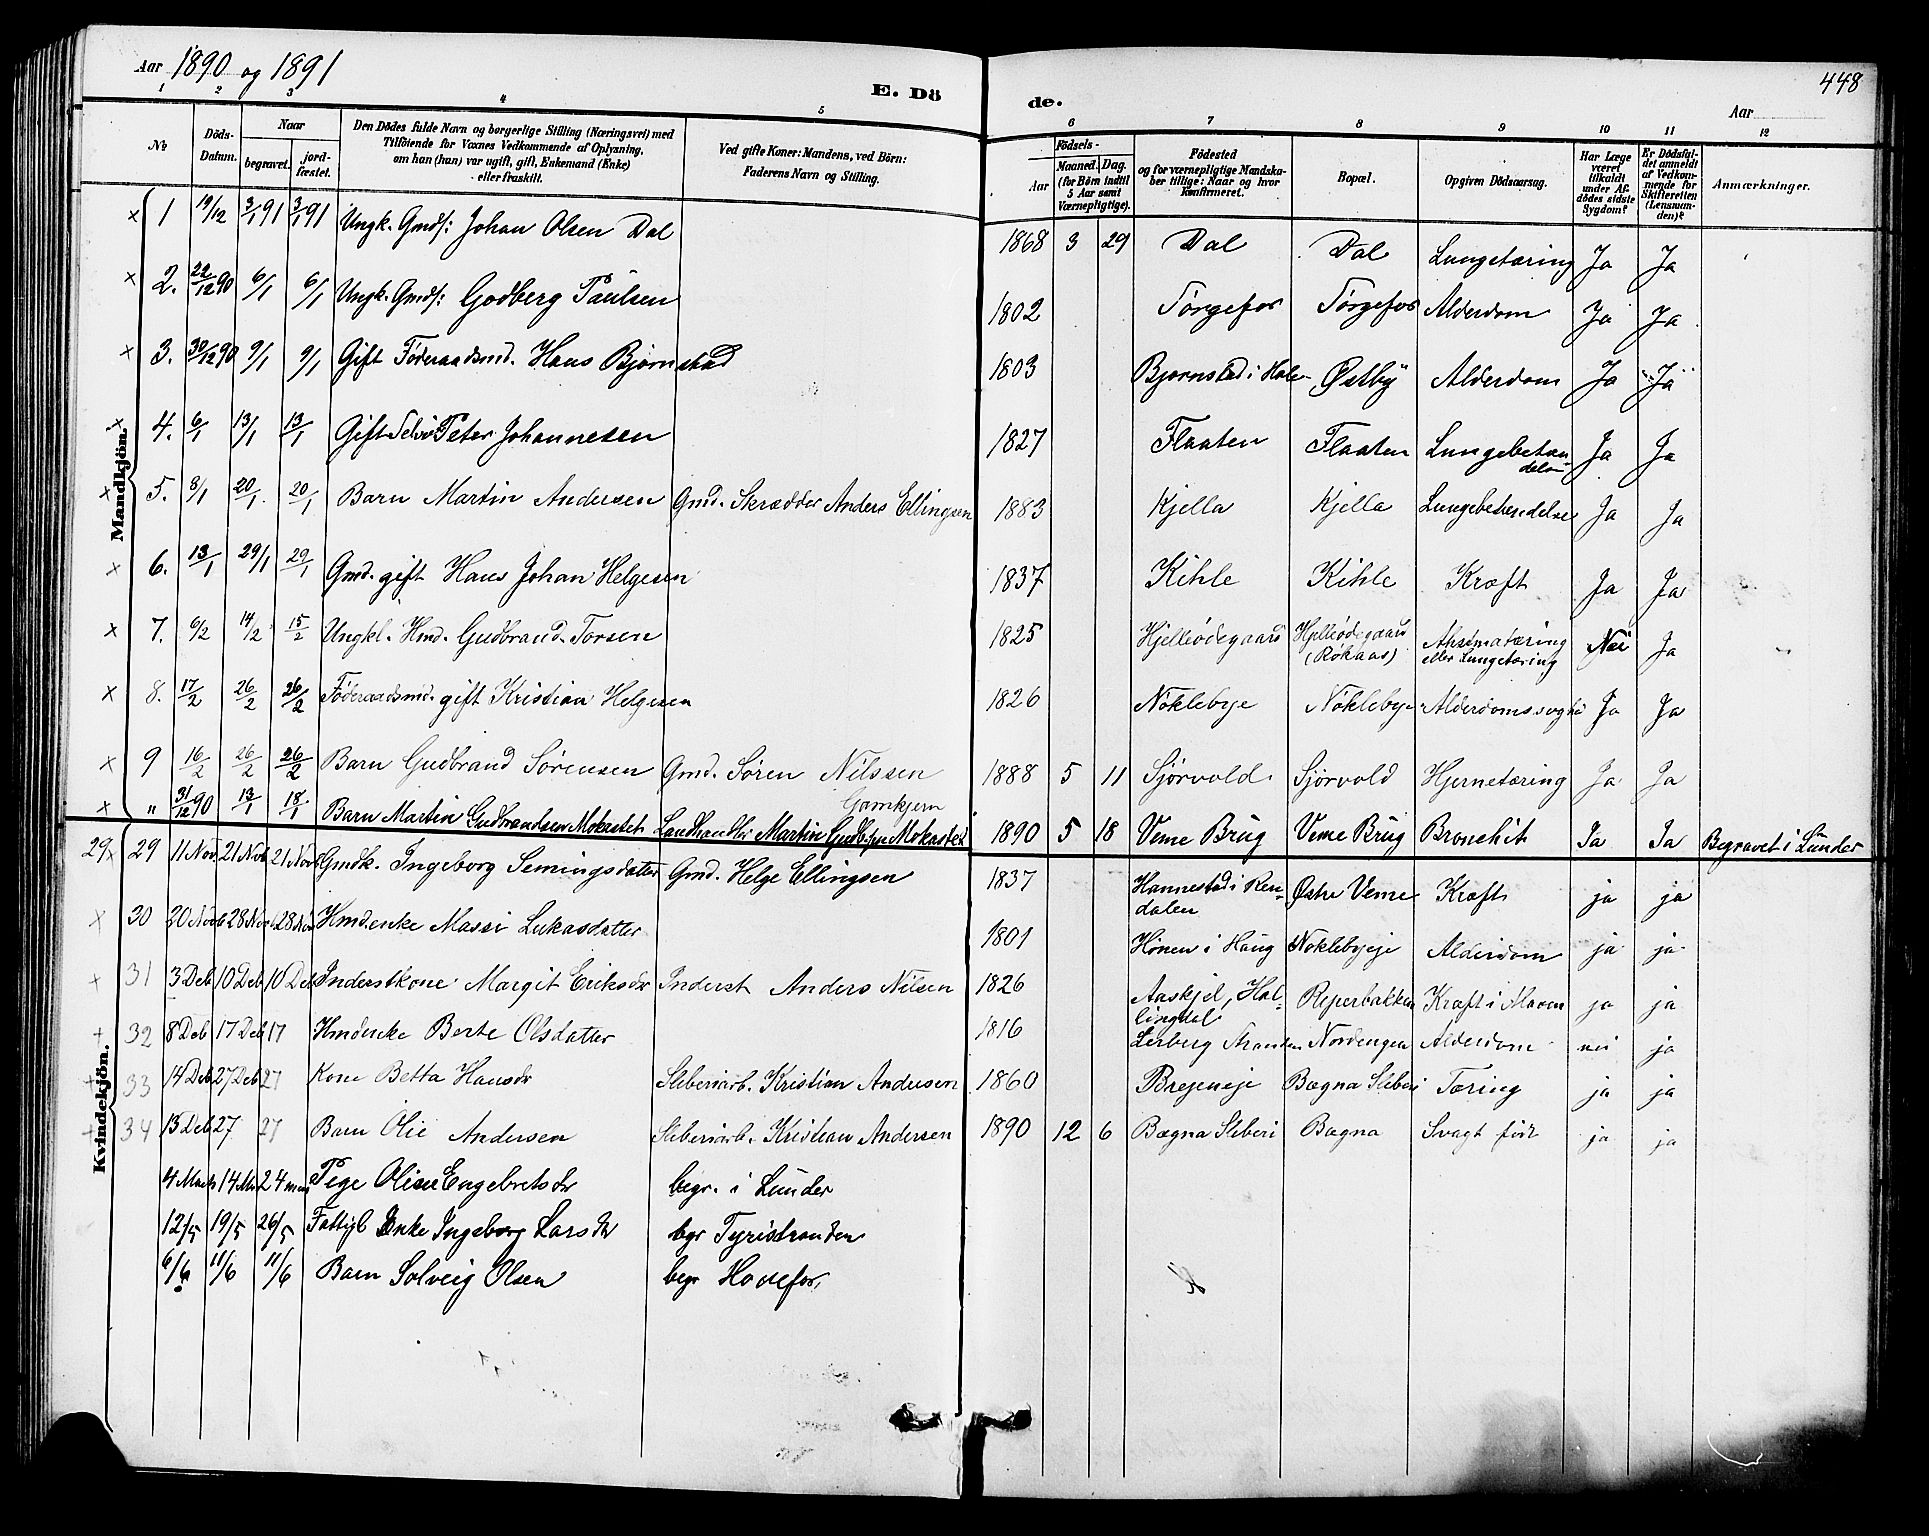 Aar 1890 og 1891
E. Dö de.
448
Aar
1 2 3 4 5 6 7 8 9 10 11 12
No
Döds-Datum.
Naar
begravet.
jord-fæstet.
Den Dödes fulde Navn og borgerlige Stilling (Næringsvei) med
Tilföiende for Voxnes Vedkommende af Oplysning,
om han (hun) var ugift, gift, Enkemand (Enke)
eller fraskilt.
Ved gifte Koner: Mandens, ved Börn:
Faderens Navn og Stilling.
Födsels-
Aar
Maaned. Dag.
(for Börn indtil
5 Aar samt
Værnepligtige).
Födested
og for værnepligtige Mandskaber tillige: Naar og hvor
konfirmeret.
Bopæl.
Opgiven Dödsaarsag.
Har Læge været tilkaldt under Afdödes sidste Sygdom?
Er Dödsfaldet anmeldt af Vedkommende for Skifteretten (Lensmanden)?
Anmærkninger.
Mandkjön.
1 19/12 3/1 91 3/1 91 Ungk. Gmds: Johan Olsen Dal 1868 3 29 Dal Dal Lungetæring Ja Ja
2. 22/12 90 6/1 6/1 Ungk. Gmds: Godberg Paulsen 1802 Törgefos Törgefos Alderdom Ja Ja
3. 30/12 90 9/1 9/1 Gift Föderaadsmd. Hans Bjørnstad 1803 Bjornstad i Hole Østby Alderdom Ja Ja
4. 6/1 13/1 13/1 Gift Selvei Peter Johannesen 1827 Flaaten Flaaten Lungebetændelse Ja Ja
5. 8/1 20/1 20/1 Barn Martin Andersen Gmd. Skrædder Anders Ellingsen 1883 Kjella Kjella Lungebetændelse Ja Ja
6. 13/1 29/1 29/1 Gmd. gift Hans Johan Helgesen 1837 Kihle Kihle Kræft Ja Ja
7. 6/2 14/2 15/2 Ungkl. Hmd. Gudbrand Torsen 1825 Hjelleödegaard Hjelleödegaard (Rökaas) Ahstmatæring eller Lungetæring Nei Ja
8. 17/2 26/2 26/2 Föderaadsmd. gift Kristian Helgesen 1826 Nöklebye Nöklebye Alderdomssvaghe Ja Ja
9 16/2 26/2 26/2 Barn Gudbrand Sörensen Gmd. Sören Nilssen Gamkjern 1888 5 11 Sjörvold Sjörvold Hjernetæring Ja Ja
" 31/12 90 13/1 18/1 Barn Martin Gudbrandsen Mokastet Landhandler Martin Gudbr Mokastet 1890 5 18 Veme Brug Veme Brug Bronchit Ja Ja Begravet i Lunder
Kvindekjön.
29 29 11 Nov 21 Nov 21 Nov Gmdk. Ingeborg Semingsdatter Gmd. Helge Ellingsen 1837 Hannestad i Rendalen Østre Veme Kræft ja ja
30 20 Nov 28 Nov 28 Nov Hmdenke Massi Lukasdatter 1801 Hönen i Haug Noklebyeje Alderdom ja ja
31 3 Deb 10 Deb 10 Deb Inderstkone Margit Eriksdr Inderst Anders Nilsen 1826 Aaskjel, Hallingdal Reperbakken Kræft i Maven ja ja
32 8 Deb 17 Deb 17 Hmdenke Berte Olsdatter 1816 Lerberg Nordengen Alderdom nei ja
33 14 Deb 27 Deb 27 Kone Betta Hansdr Sliberiarb. Kristian Andersen 1860 Bregeneje Bægna Sliberi Tæring ja ja
34 13 Deb 27 27 Barn Olie Andersen Sliberiarb. Kristian Andersen 1890 12 6 Bægna Sliberi Bægna Svagt født ja ja
4 Marts 14 Ma 24 mar Pige Oline Engebretsdr begr. i Lunder
12/5 19/5 26/5 Fattigl Enke Ingeborg Larsdr bgr Tyristranden
6/6 11/6 11/6 Barn Solveig Olsen begr Hovefos.